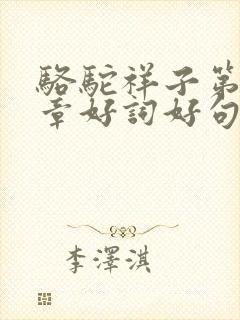 駱駝祥子第
章好詞好句
李澤淇